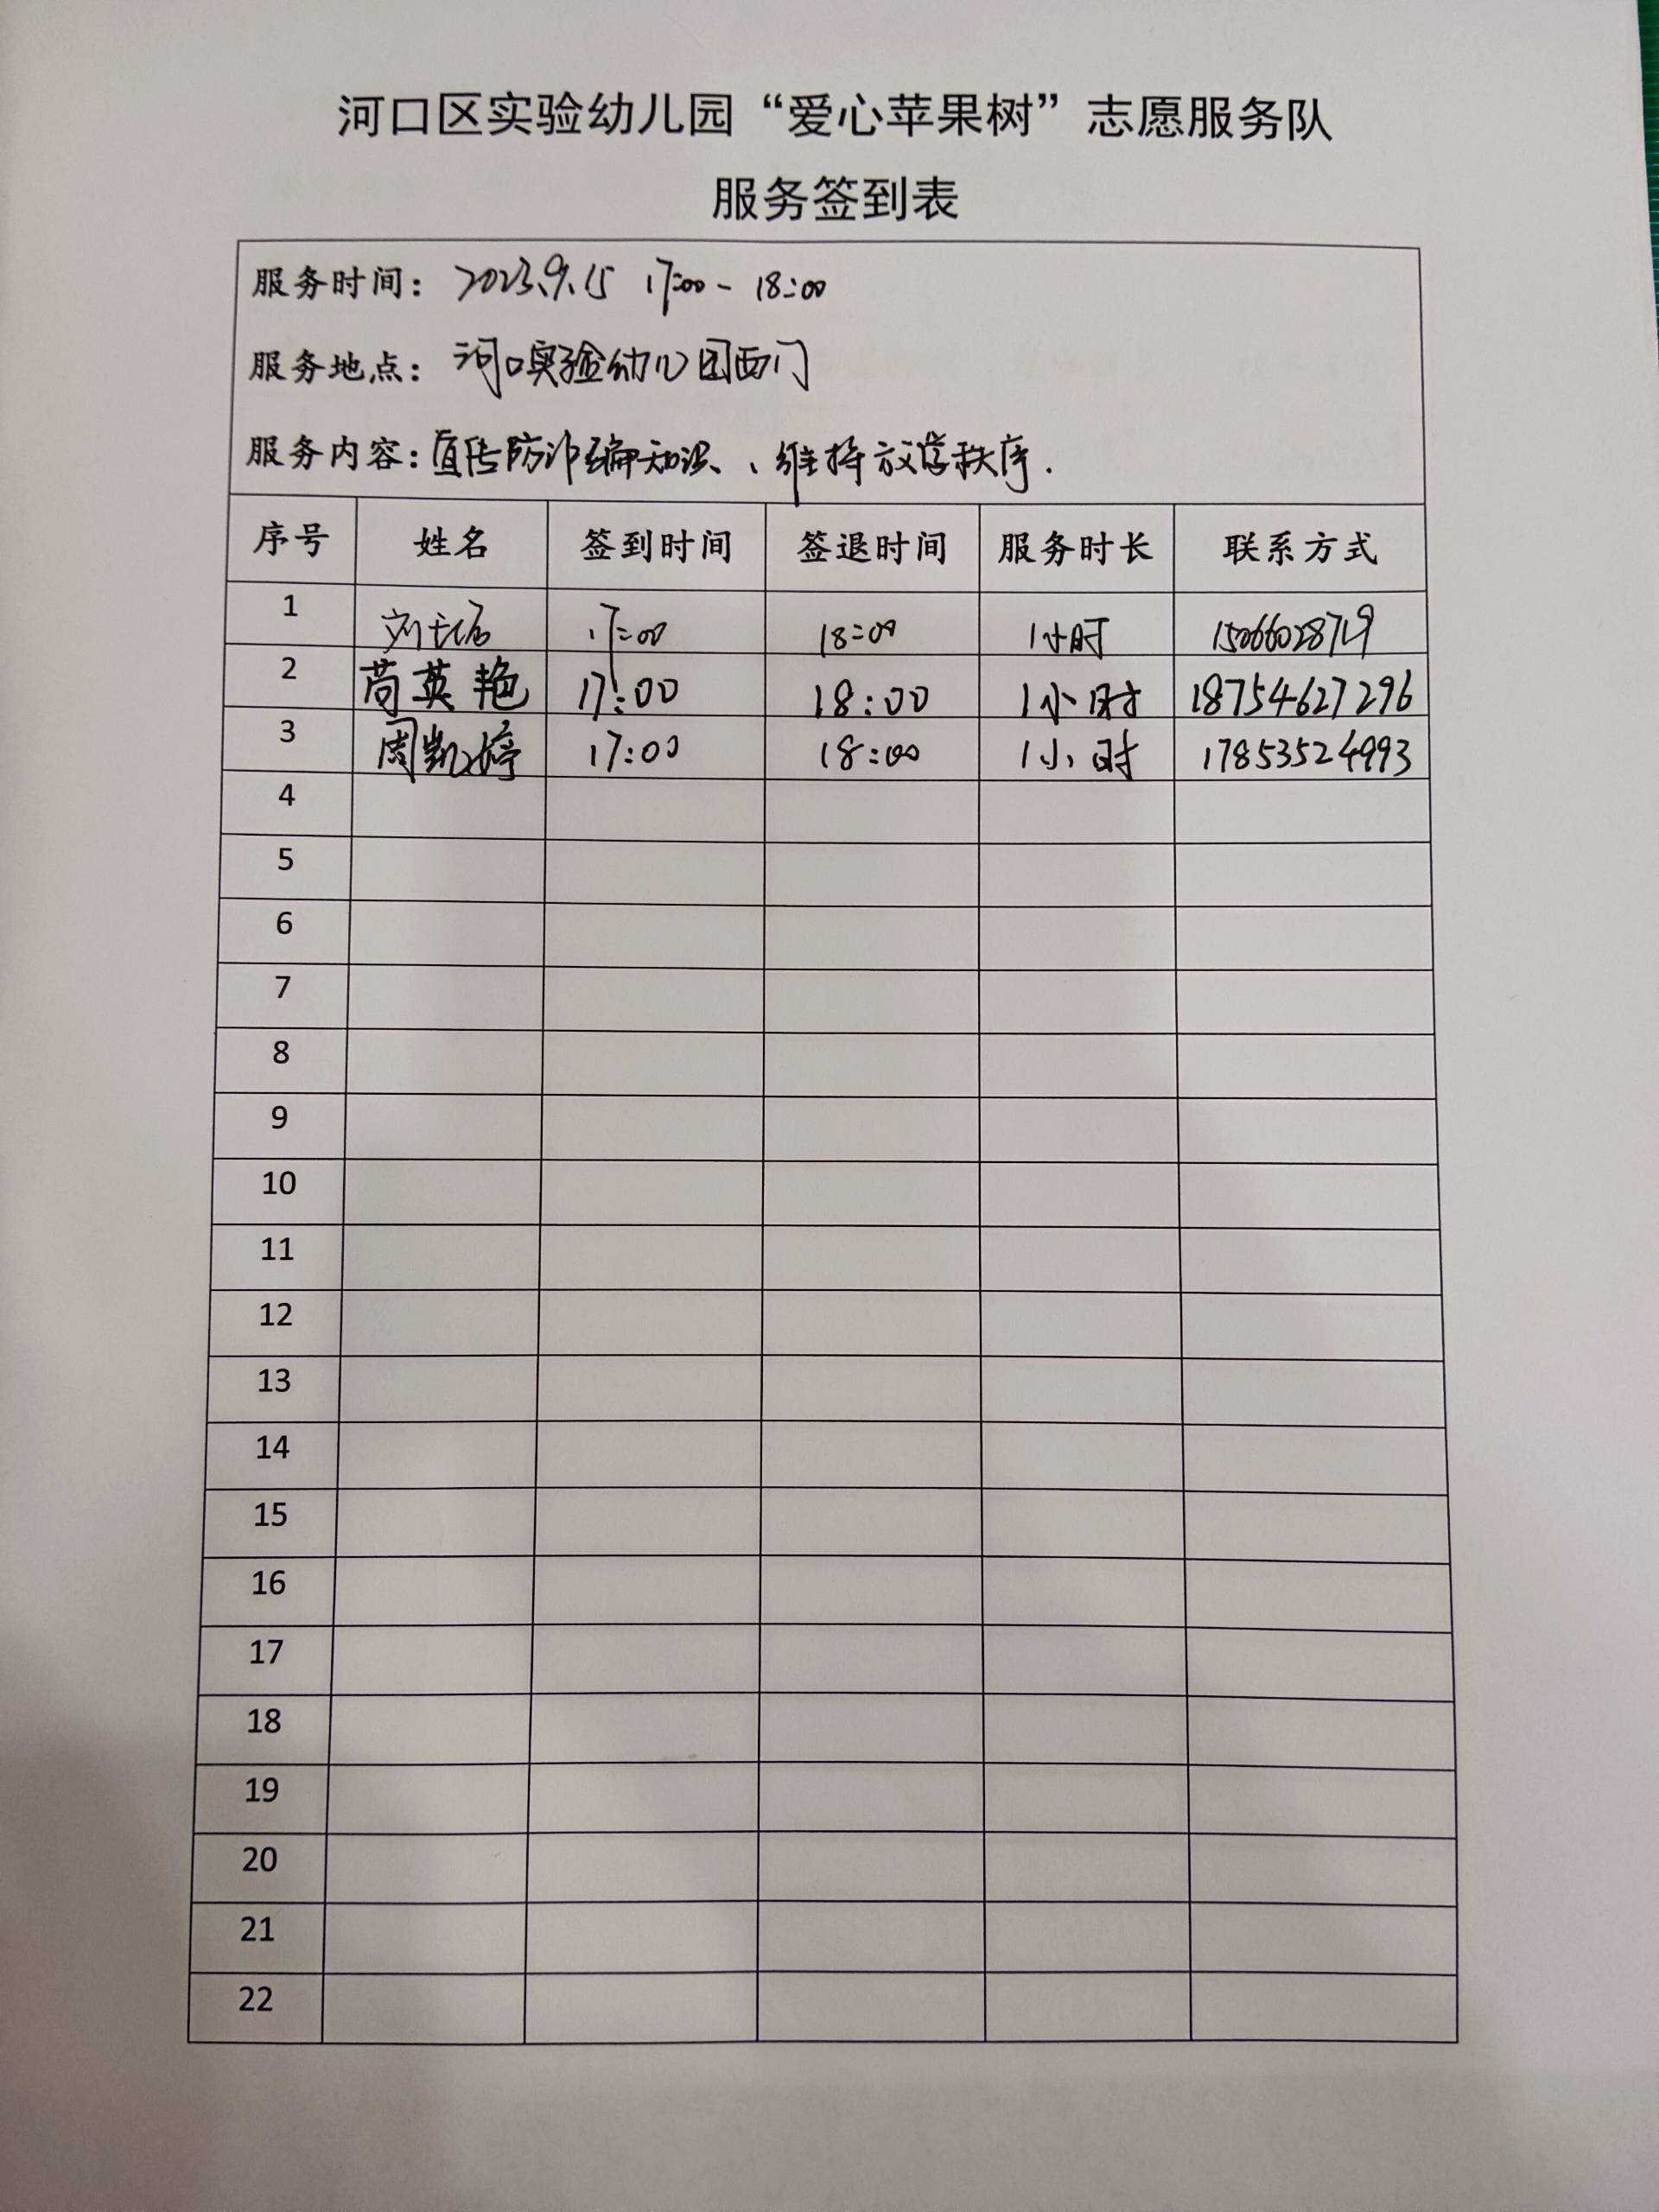 河口区实验幼儿园“爱心苹果树”志愿服务队
服务签到表
服务时间：2023.9.15 17:00-18:00
服务地点：河口实验幼儿园西门
服务内容：宣传防诈骗知识、维持放学秩序.
序号 姓名 签到时间 签退时间 服务时长 联系方式
1 17:00 18:00 1小时
2 苘英艳 17:00 18:00 1小时 18754627296
3 周凯婷 17:00 18:00 1小时 17853524993
4
5
6
7
8
9
10
11
12
13
14
15
16
17
18
19
20
21
22